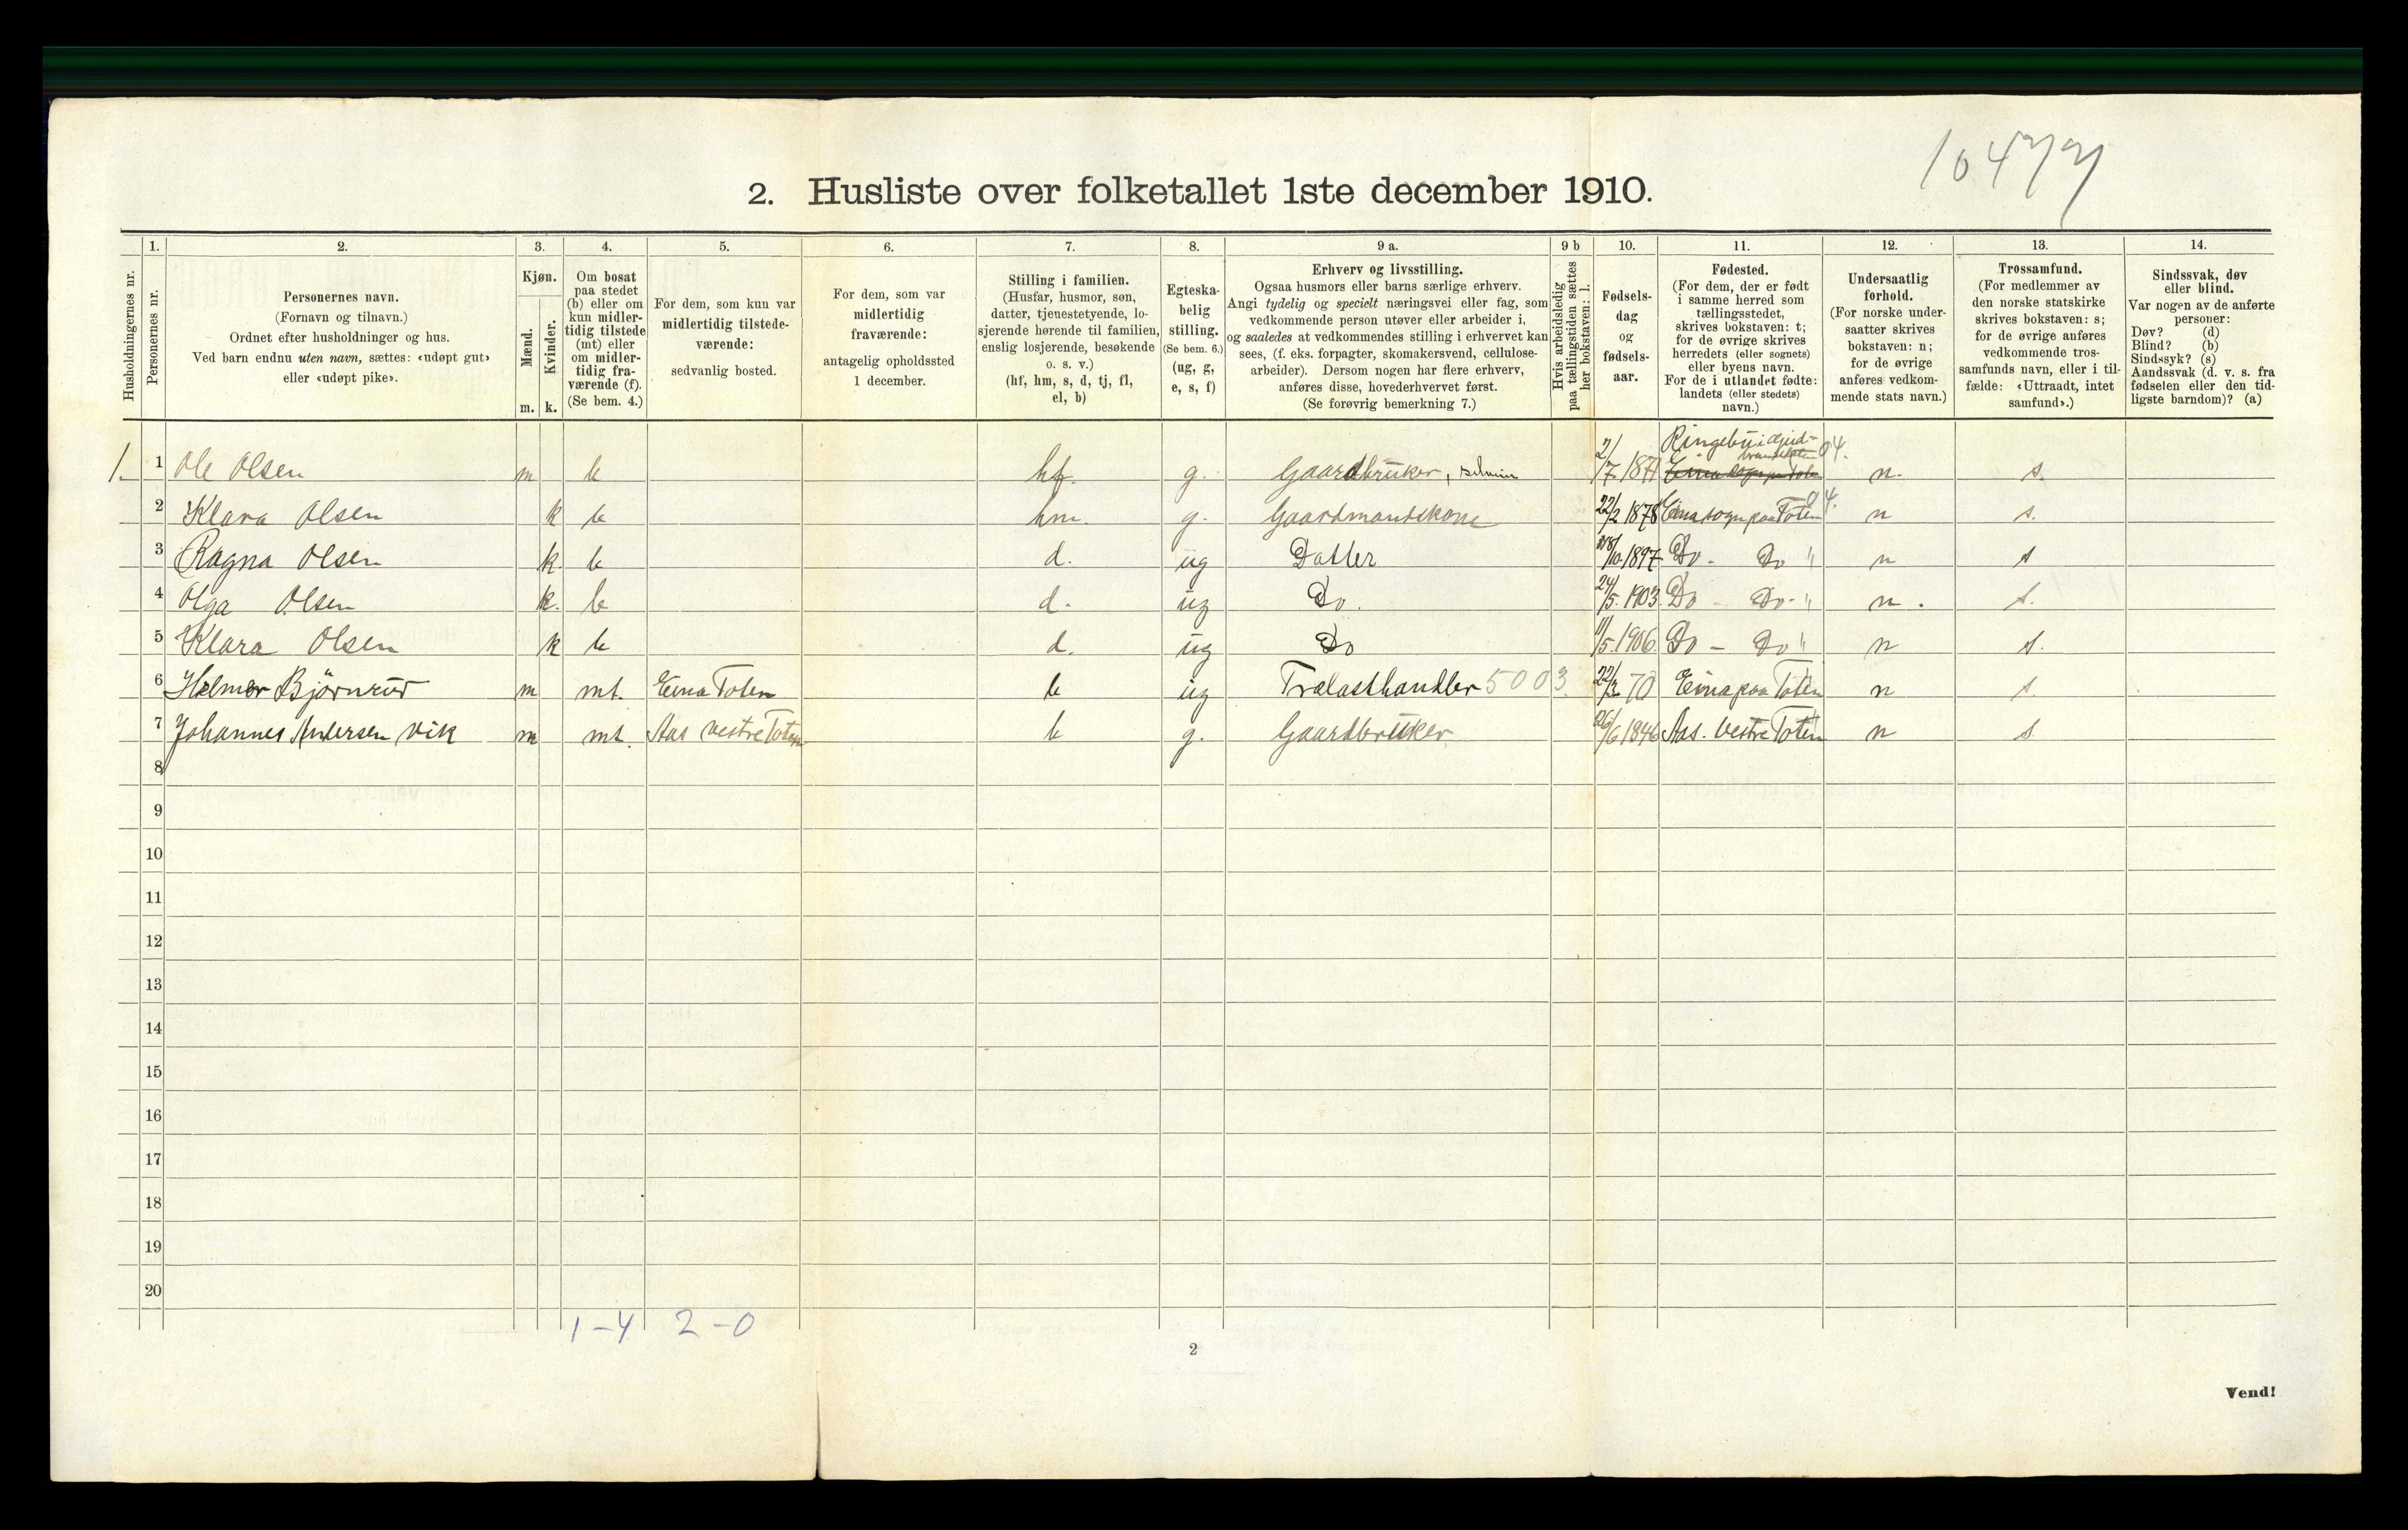 10477
2. Husliste over folketallet 1ste december 1910.
Husholdningernes nr.
1.
Personernes nr.
2.
Personernes navn.
(Fornavn og tilnavn.)
Ordnet efter husholdninger og hus.
Ved barn endnu uten navn, sættes: «udøpt gut»
eller «udøpt pike».
3.
Kjøn.
Mænd.
m.
Kvinder.
k.
4.
Om bosat
paa stedet
(b) eller om
kun midler-
tidig tilstede
(mt) eller
om midler-
tidig fra-
værende (f).
(Se bem. 4.)
5.
For dem, som kun var
midlertidig tilstede-
værende:
sedvanlig bosted.
6.
For dem, som var
midlertidig
fraværende:
antagelig opholdssted
1 december.
7.
Stilling i familien.
(Husfar, husmor, søn,
datter, tjenestetyende, lo-
sjerende hørende til familien,
enslig losjerende, besøkende
o. s. v.)
(hf, hm, s, d, tj, fl,
el, b)
8.
Egteska-
belig
stilling.
(Se bem. 6.)
(ug, g,
e, s, f)
9 a.
Erhverv og livsstilling.
Ogsaa husmors eller barns særlige erhverv.
Angi tydelig og specielt næringsvei eller fag, som
vedkommende person utøver eller arbeider i,
og saaledes at vedkommendes stilling i erhvervet kan
sees, (f. eks. forpagter, skomakersvend, cellulose-
arbeider). Dersom nogen har flere erhverv,
anføres disse, hovederhvervet først.
(Se forøvrig bemerkning 7.)
9 b
Hvis arbeidsledig
paa tællingstiden sættes
her bokstaven: l.
10.
Fødsels-
dag
og
fødsels-
aar.
11.
Fødested.
(For dem, der er født
i samme herred som
tællingsstedet,
skrives bokstaven: t;
for de øvrige skrives
herredets (eller sognets)
eller byens navn.
For de i utlandet fødte:
landets (eller stedets)
navn.)
12.
Undersaatlig
forhold.
(For norske under-
saatter skrives
bokstaven: n;
for de øvrige
anføres vedkom-
mende stats navn.)
13.
Trossamfund.
(For medlemmer av
den norske statskirke
skrives bokstaven: s;
for de øvrige anføres
vedkommende tros-
samfunds navn, eller i til-
fælde: «Uttraadt, intet
samfund».)
14.
Sindssvak, døv
eller blind.
Var nogen av de anførte
personer:
Døv? (d)
Blind? (b)
Sindssyk? (s)
Aandssvak (d. v. s. fra
fødselen eller den tid-
ligste barndom)? (a)
1. 1 Ole Olsen m b hf. g. Gaardbruker, 2/7 1871 Ringebu i 04. n. s.
2 Klara Olsen k b hm. g. Gaardmandskone 22/2 1878 Eina sogn paa Toten 04. n s.
3 Ragna Olsen k. b d. ug Datter 1897 Do - Do " n s
4 Olga Olsen k. b d. ug Do. 24/5. 1903 Do - Do - " n. s.
5 Klara Olsen k b d. ug Do 11/5. 1906 Do - Do " n s.
6 Helmer Björnrud m mt. Eina Toten b ug Trælasthandler 5003. 22/3 70 Eina paa Toten n s.
7 Johannes Andersen Vik m mt. Aas vestre Toten b g. Gaardbruker 26/6 1846 Aas. Vestre Toten n s
8
9
10
11
12
13
14
15
16
17
18
19
20
1 - 4 2 - 0
2
Vend!